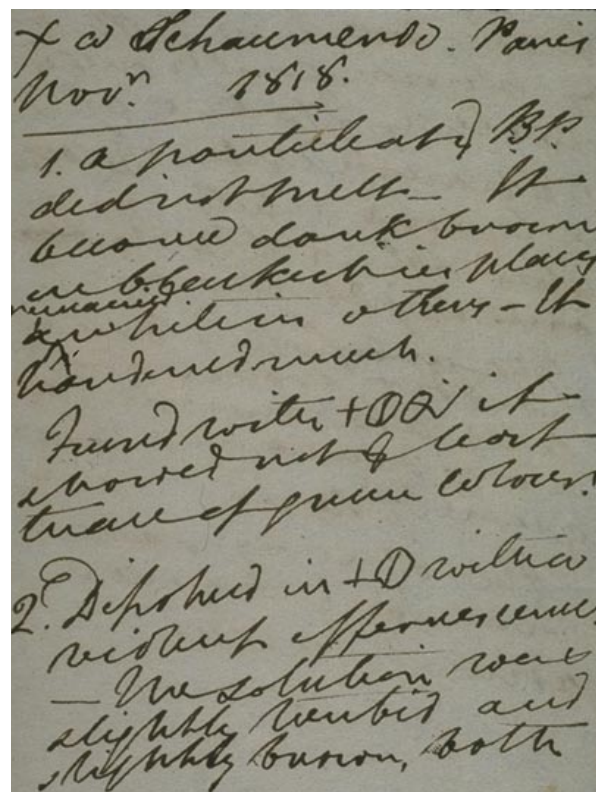 Schaumendo. Paris
Novr. 1818.
1. a particle at BP.
did not melt – It
became dark brown
or blackish in places
remained
& white in others – It
hardened much.
Fused with it
showed not least
trace of green colour.
2. Dissolved in with a
violent effervescence
– The solution was
slightly turbid and
slightly brown, both